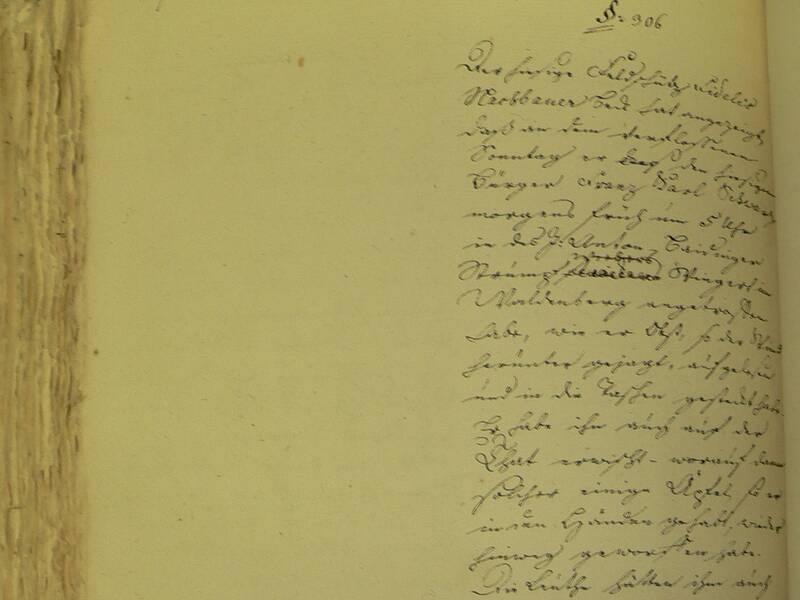 §: 906
Der hiesige Feldschütz Fidelis
Nachbauer hat angezeigt,
daß an dem verflossenen
Sonntag er den hiesigen
Bürger Franz Karl Schwarz
morgens früh um 5 Uhr
in des J: Anton
Strumpf Wingert in
Waldenberg angetroffen
habe, wie er Obst, so der Wind
herunter gejagt, aufgelesen
und in die Taschen gesteckt habe.
Er habe ihn auch auf der
That erwischt - worauf dann
solcher einige Äpfel, so er
in den Händen gehabt, wieder
hinweg geworffen habe.
Die Leuthe hätten ihm auch